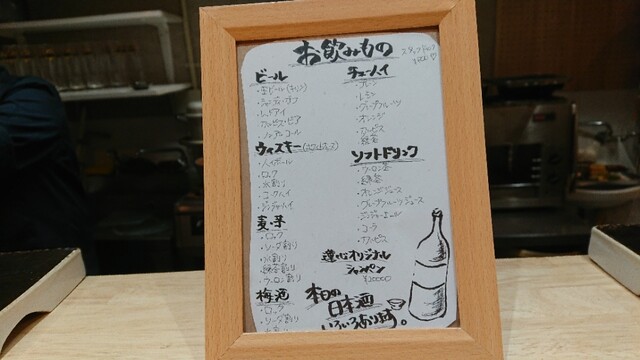 お飲みもの
ビール
・生ビール(キリン)
・シャンディガフ
・レッドアイ
・カルピスビア
・ノンアルコール
ウィスキー
・ハイボール
・ロック
・水割り
・コークハイ
・ジンジャーハイ
麦・芋
・ロック
・ソーダ割り
・水割り
・緑茶割り
・ウーロン割り
梅酒
・ロック
・ソーダ割り
チューハイ
・プレーン
・レモン
・グレープフルーツ
・オレンジ
・カルピス
・緑茶
ソフトドリンク
・ウーロン茶
・緑茶
・オレンジジュース
・グレープフルーツジュース
・ジンジャーエール
・コーラ
・カルピス
蓮心オリジナル
シャンパン
¥20000
本日の
日本酒
いろいろあります。